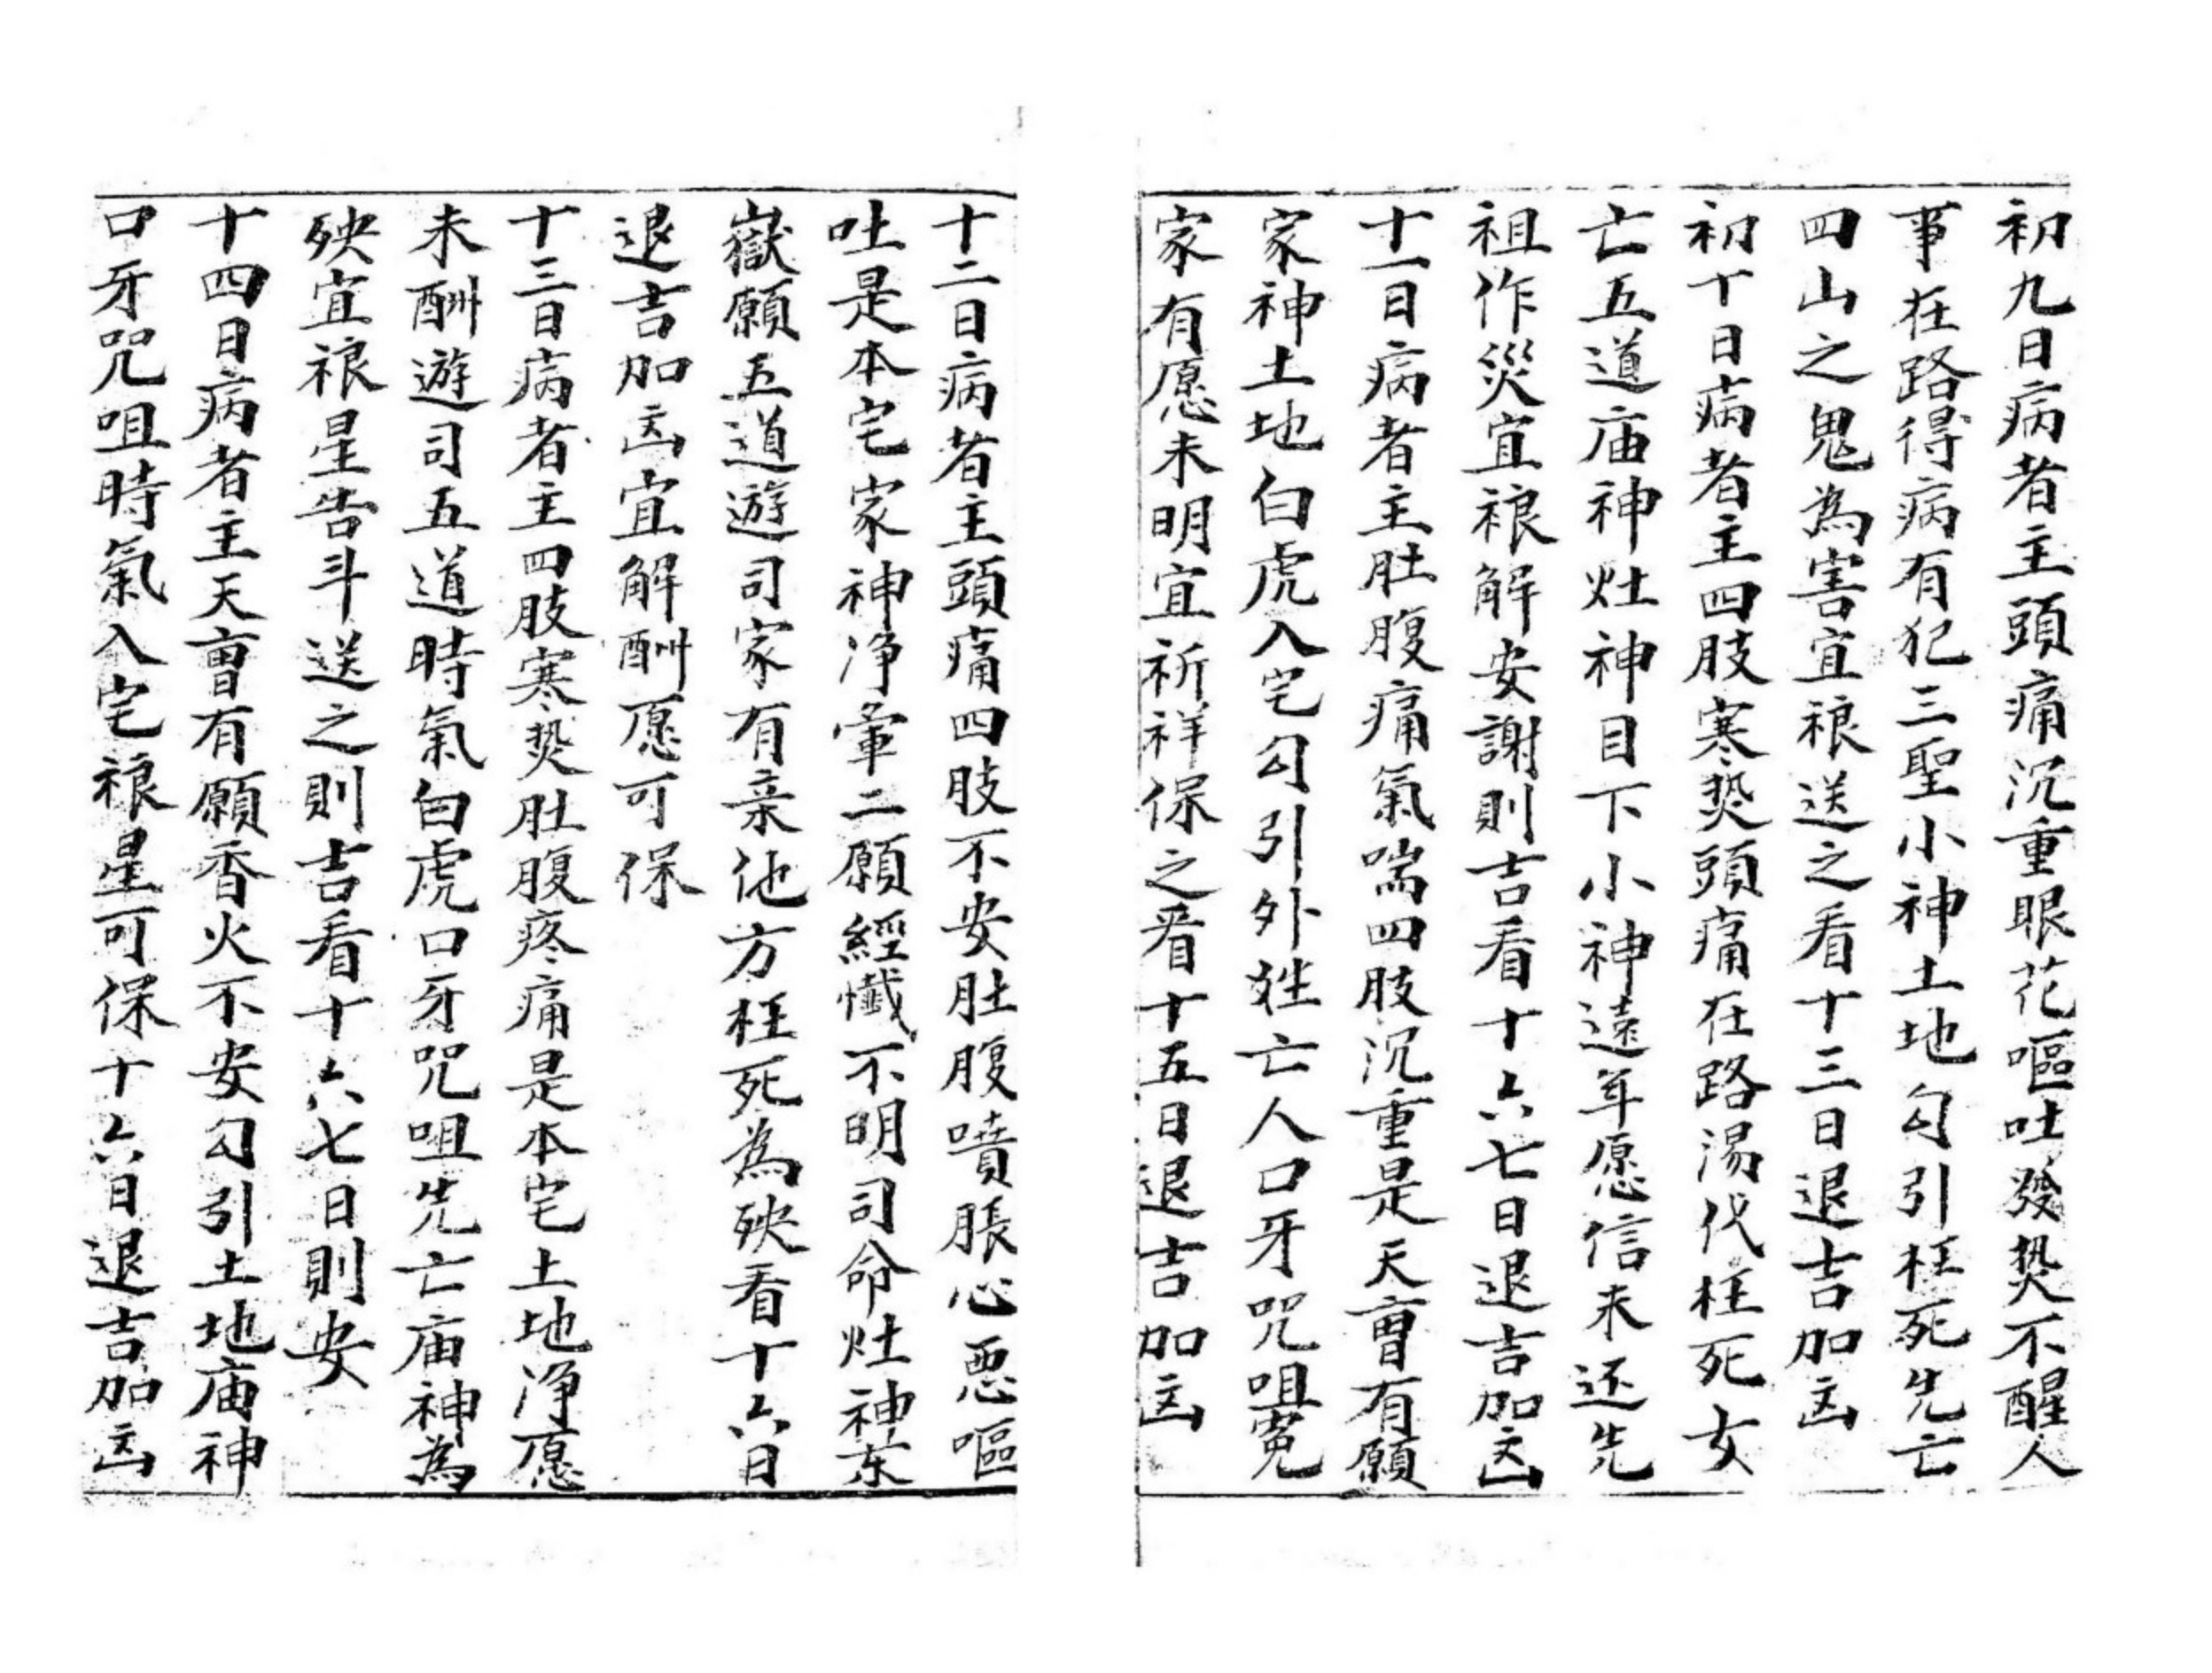 初九日病者主頭痛沉重眼花嘔吐發热不醒人
事在路得病有犯三聖小神土地勾引枉死先亡
四山之鬼為害宜禳送之看十三日退吉加凶
初十日病者主四肢寒热頭痛在路湯代枉死女
亡五道庙神灶神目下小神遠年愿信未还先
祖作災宜禳解安謝則吉看十六七日退吉加凶
十一日病者主肚腹痛氣喘四肢沉重是天曹有願
家神土地白虎入宅勾引外姓亡人口牙咒咀冤
家有愿未明宜祈祥保之看十五日退吉加凶
十二日病者主頭痛四肢不安肚腹噴脹心恶嘔
吐是本宅家神净暈二願經懺不明司命灶神东
嶽願五道遊司家有亲他方枉死為殃看十六日
退吉加凶宜解酬愿可保
十三日病者主四肢寒热肚腹疼痛是本宅土地净愿
未酬遊司五道時氣白虎口牙咒咀先亡庙神為
殃宜禳星告斗送之則吉看十六七日則安
十四日病者主天曹有願香火不安勾引土地庙神
口牙咒咀時氣入宅禳星可保十六日退吉加凶